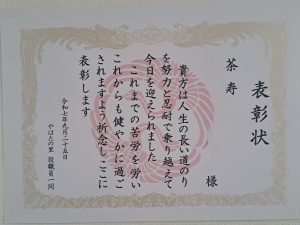 表彰状
茶寿
様
貴方は人生の長い道のり
を努力と忍耐で乗り越えて
今日を迎えられました
これまでの苦労を労い
これからも健やかに過ご
されますよう祈念しここに
表彰します
令和七年九月二十五日
やはたの里 役職員一同